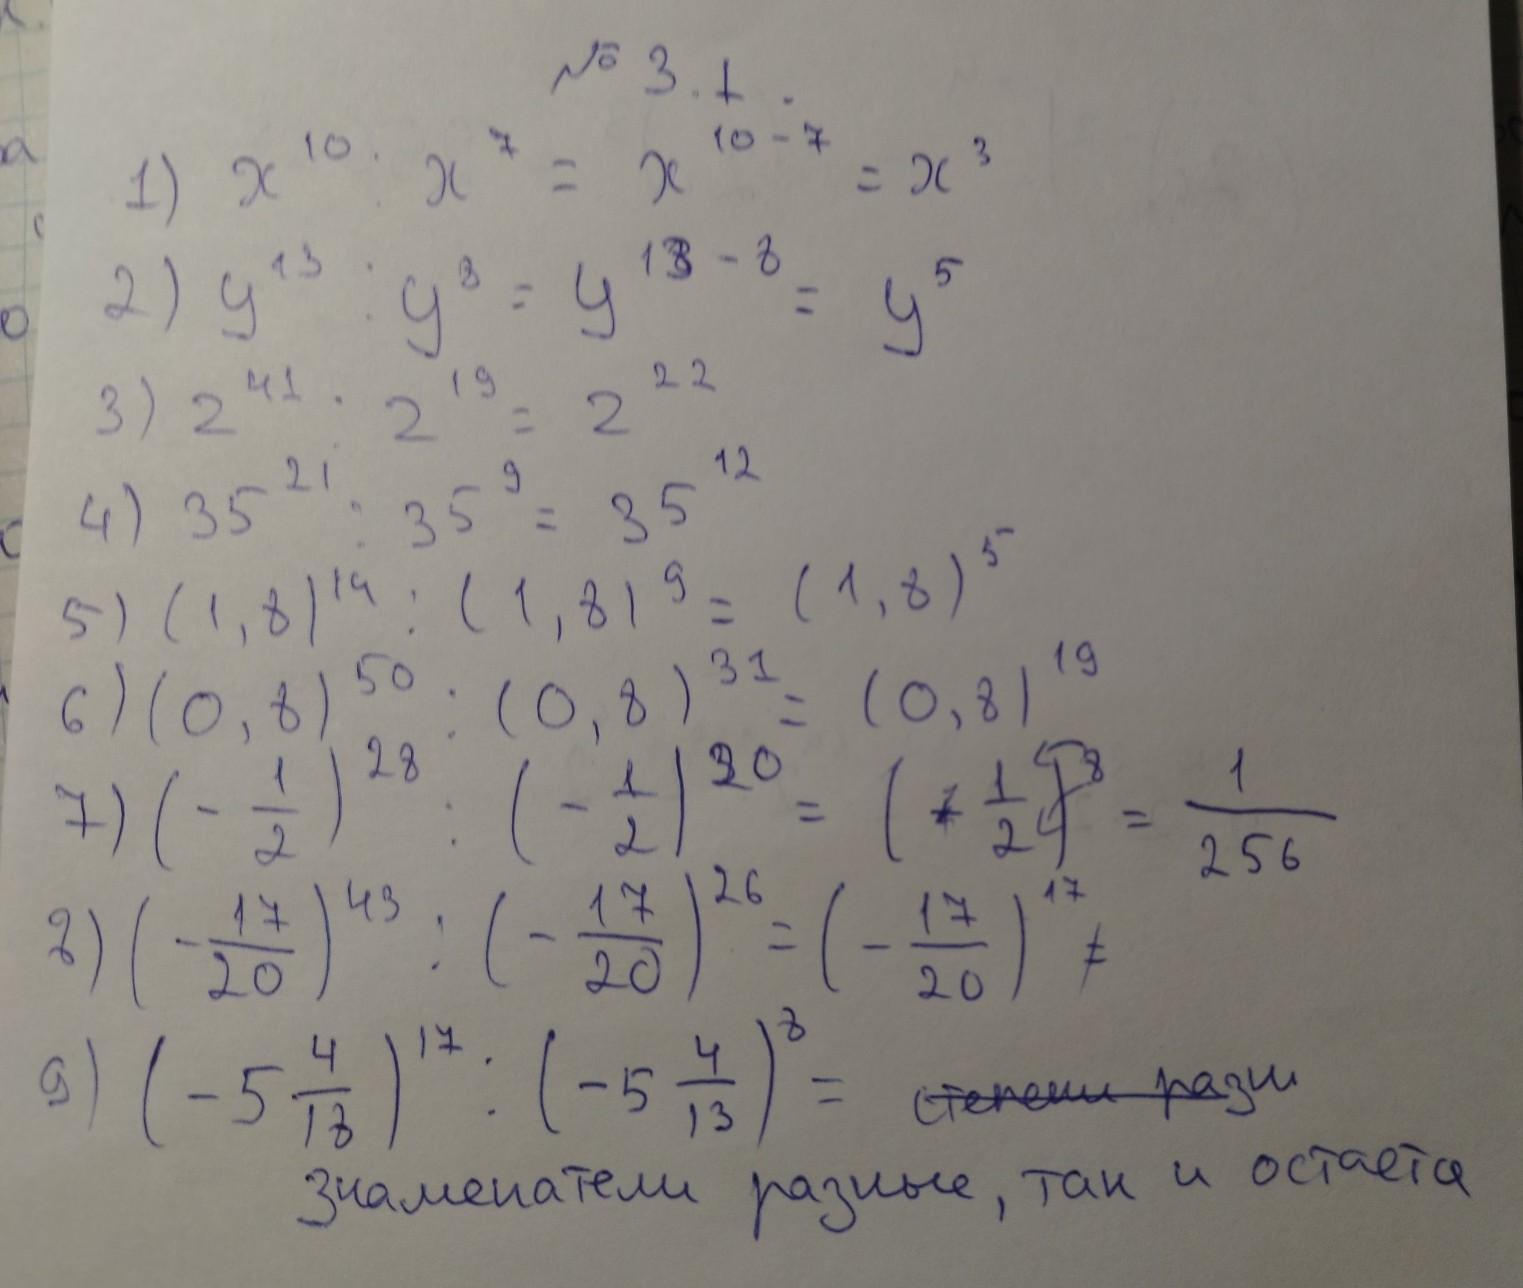 № 3.1.
1) x^10 : x^7 = x^(10-7) = x^3
2) y^13 : y^8 = y^(13-8) = y^5
3) 2^41 : 2^19 = 2^22
4) 35^21 : 35^9 = 35^12
5) (1,8)^14 : (1,8)^9 = (1,8)^5
6) (0,8)^50 : (0,8)^31 = (0,8)^19
7) (-1/2)^28 : (-1/2)^20 = (-1/2)^8 = 1/256
8) (-17/20)^43 : (-17/20)^26 = (-17/20)^17
9) (-5 4/18)^17 : (-5 4/13)^8 = степени разн
Знаменатели разные, так и остаета